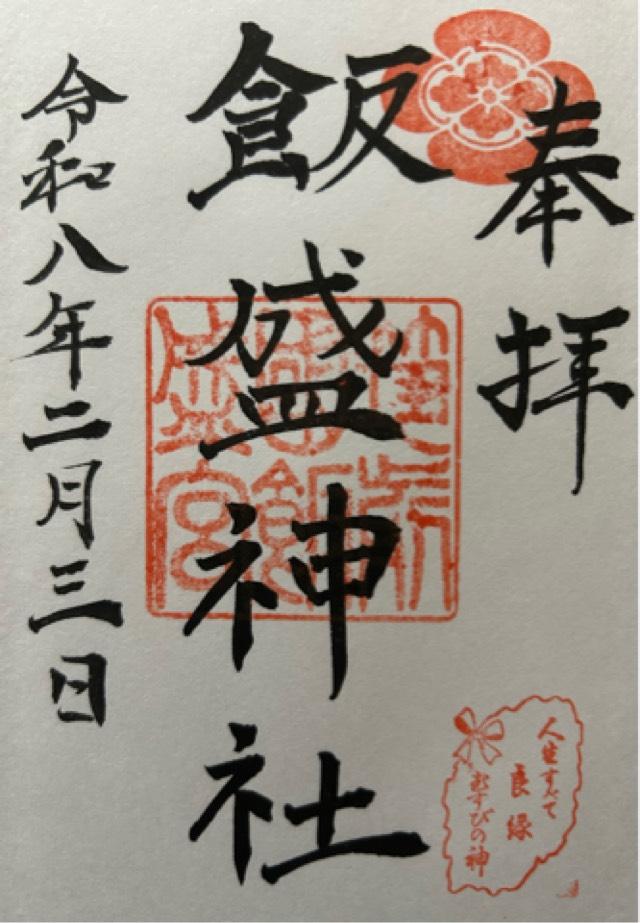 奉拝
飯盛神社
令和八年二月三日
人生すべて
良縁
むすびの神